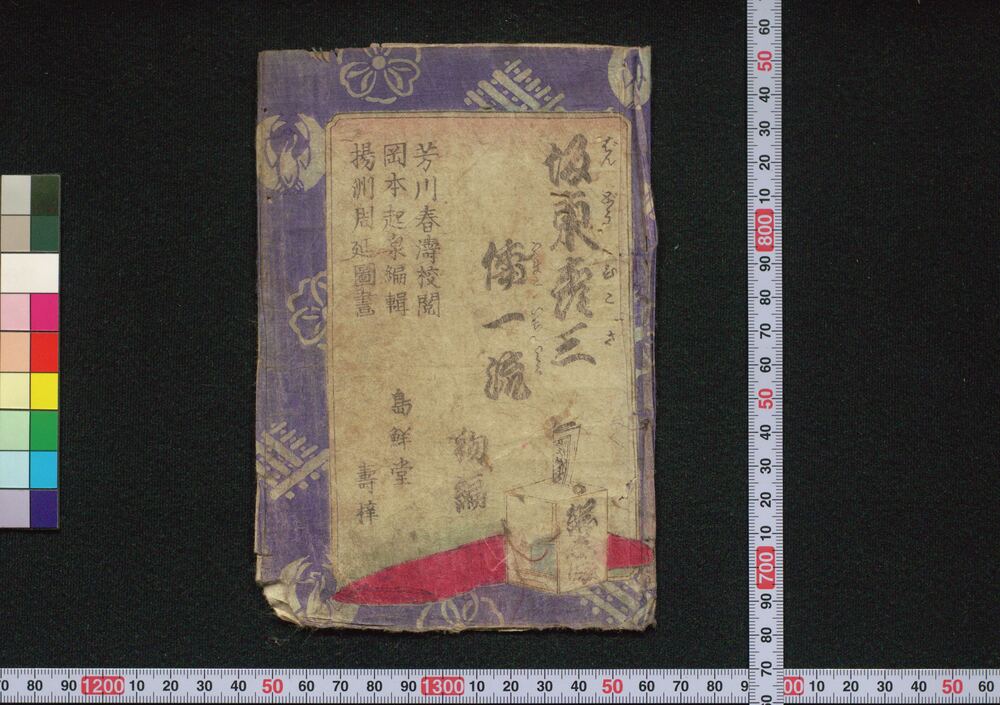 坂東彦三
ばんどうひこさ
倭一流
芳川春濤校閲
岡本起泉編輯
揚洲周延圖畫
初編
島鮮堂
壽梓
60
50
40
30
20
10
800
90
80
70
60
50
40
30
20
10
700
90
80
70
70 80 90 1200 10 20 30 40 50 60 70 80 90 1300 10 20 30 40 50 60 70 80 90 10 20 30 40 50 60